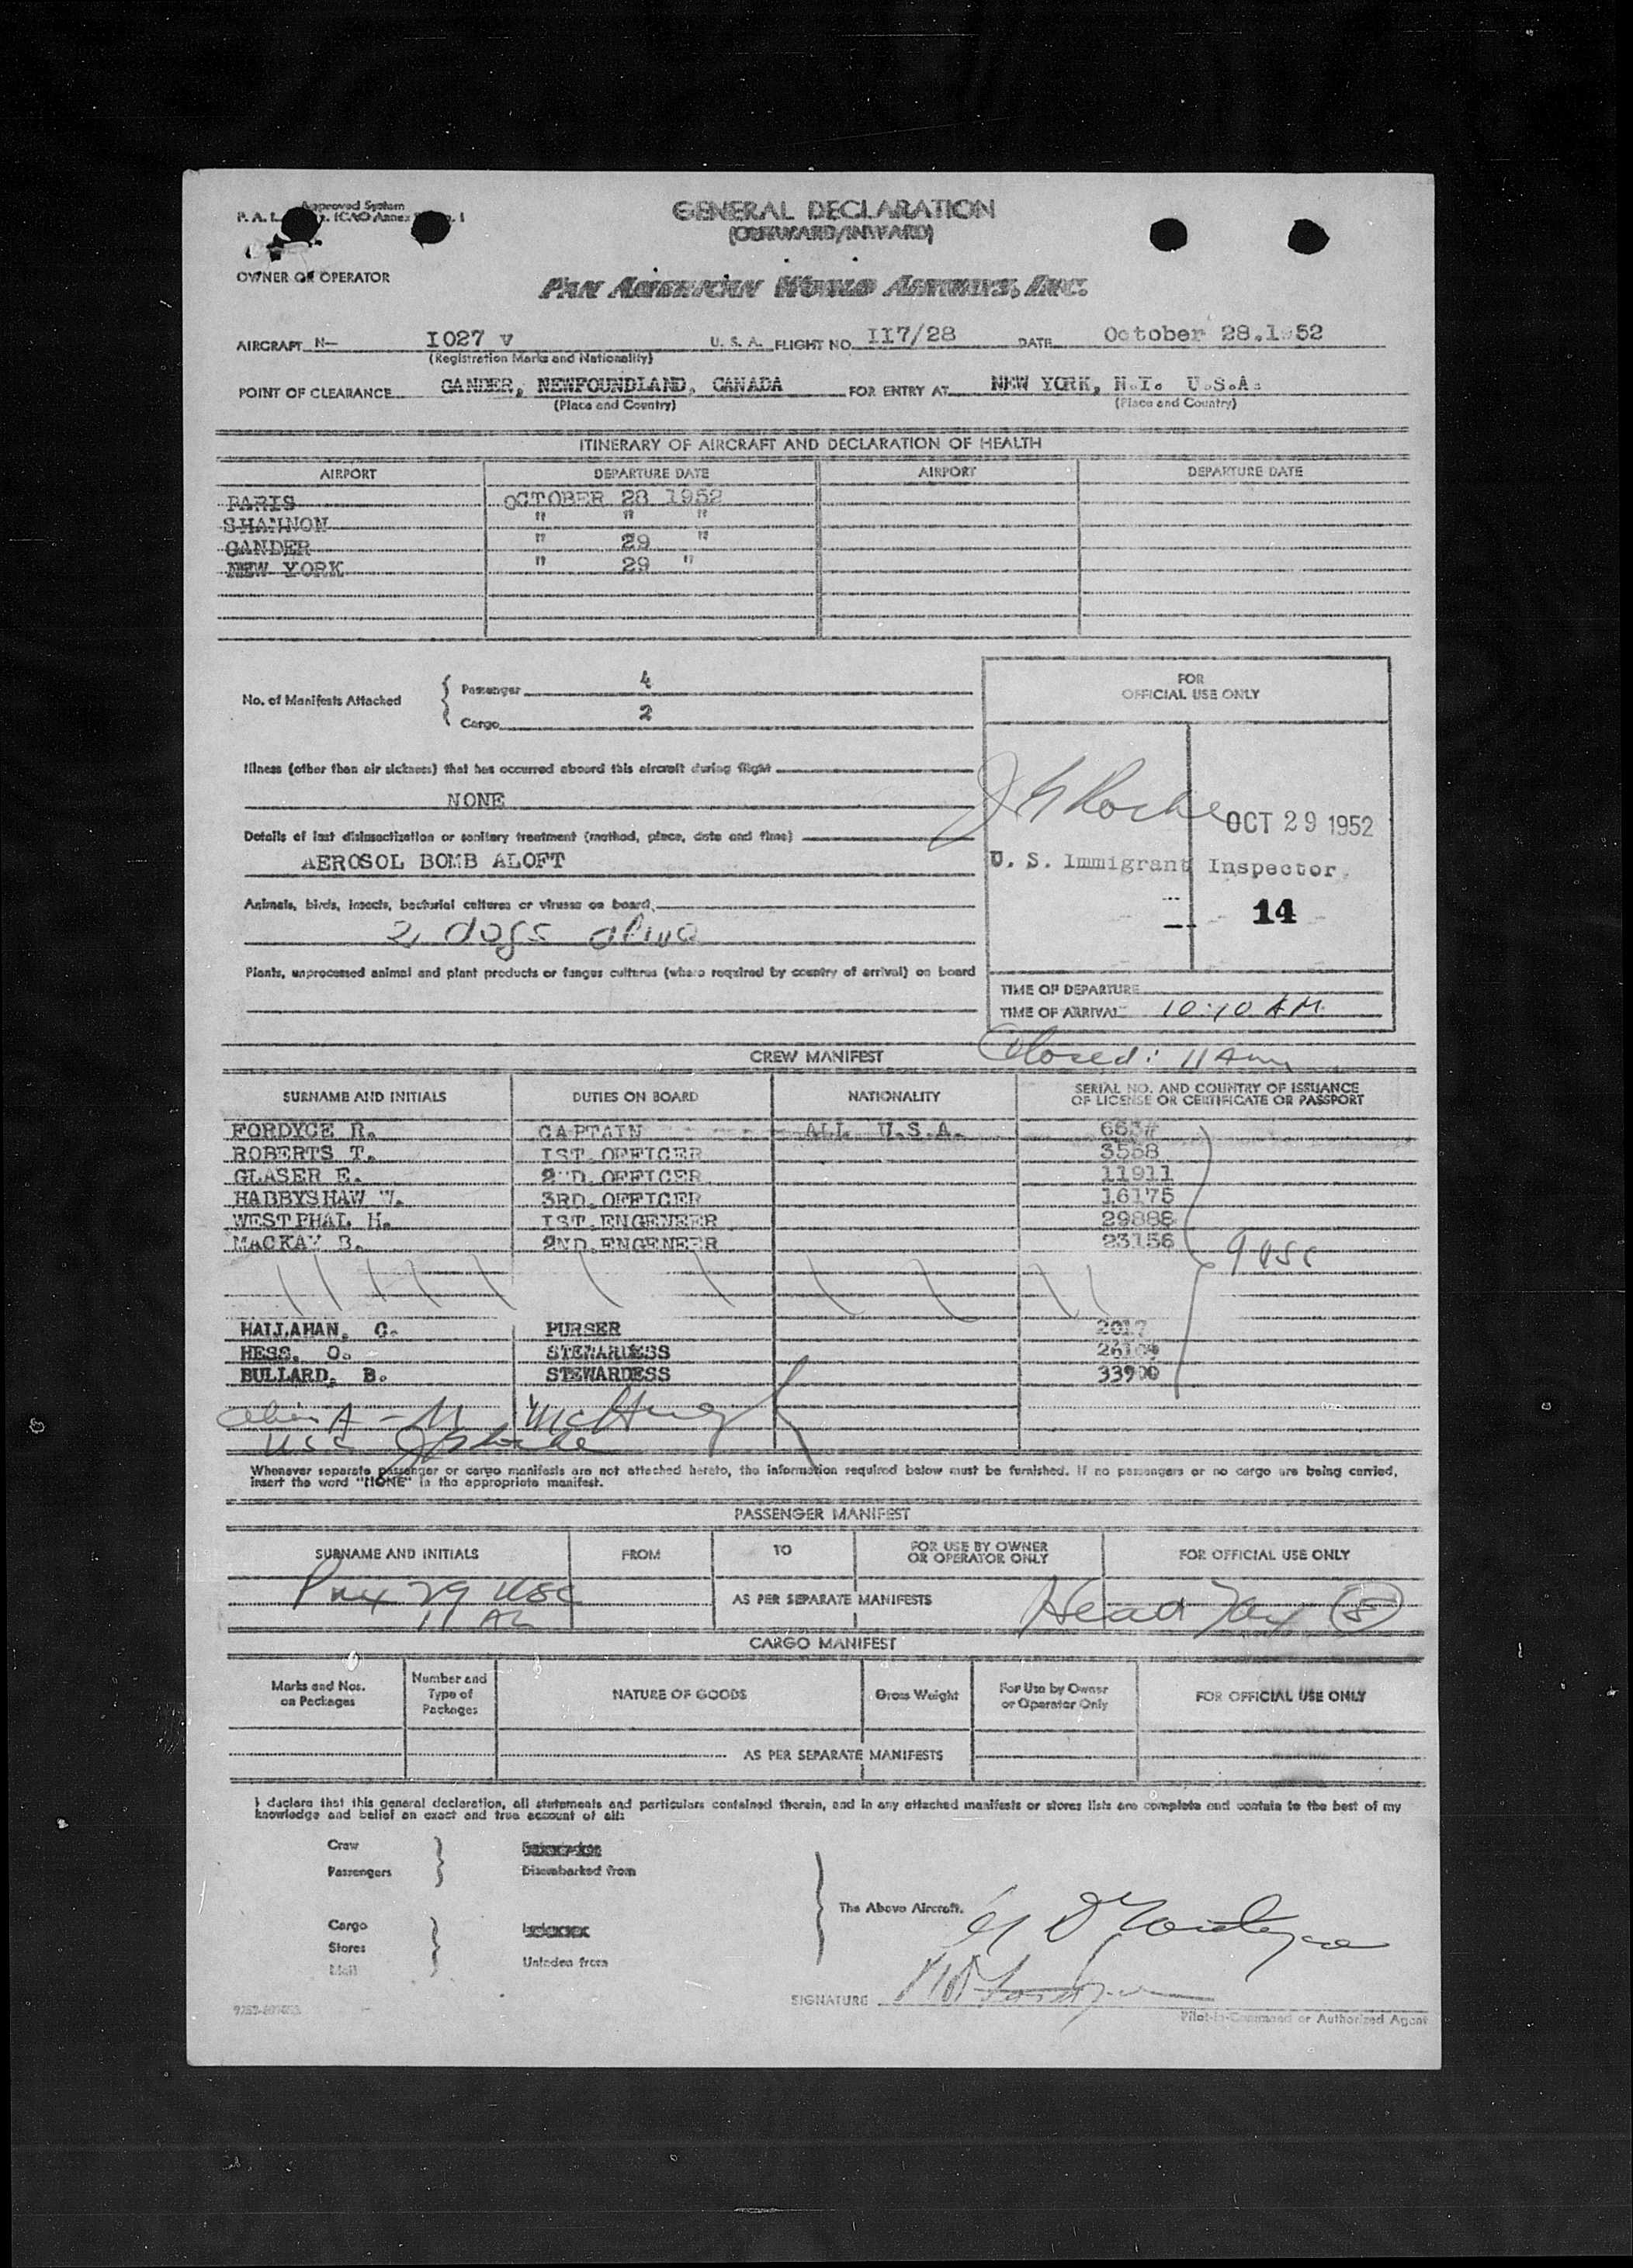 Approved System
P. A. L. ICAO Annex
GENERAL DECLARATION
(OUTWARD/INWARD)
OWNER OR OPERATOR
PAN AMERICAN WORLD AIRWAYS, INC.
AIRCRAFT N— I027 V U. S. A. FLIGHT NO. II7/28 DATE October 28.1952
(Registration Marks and Nationality)
POINT OF CLEARANCE GANDER, NEWFOUNDLAND, CANADA FOR ENTRY AT NEW YORK, N.Y. U.S.A.
(Place and Country) (Place and Country)
ITINERARY OF AIRCRAFT AND DECLARATION OF HEALTH
AIRPORT DEPARTURE DATE AIRPORT DEPARTURE DATE
PARIS OCTOBER 28 1952
SHANNON " " "
GANDER " 29 "
NEW YORK " 29 "
No. of Manifests Attached { Passenger 4
Cargo 2
FOR
OFFICIAL USE ONLY
Illness (other than air sickness) that has occurred aboard this aircraft during flight
NONE
Details of last disinsectization or sanitary treatment (method, place, date and time)
AEROSOL BOMB ALOFT
Animals, birds, insects, bacterial cultures or viruses on board
2 dogs alive
Plants, unprocessed animal and plant products or fungus cultures (where required by country of arrival) on board
J G Roche OCT 29 1952
U. S. Immigrant Inspector
14
TIME OF DEPARTURE
TIME OF ARRIVAL 10:10 AM
Closed: 11 Am
CREW MANIFEST
SURNAME AND INITIALS DUTIES ON BOARD NATIONALITY SERIAL NO. AND COUNTRY OF ISSUANCE
OF LICENSE OR CERTIFICATE OR PASSPORT
FORDYCE R. CAPTAIN ALL U.S.A.
ROBERTS T. IST.OFFICER 3558
GLASER E. 2ND.OFFICER 11911
HABBYSHAW W. 3RD.OFFICER 16175
WESTPHAL H. IST.ENGENEER 29888
MACKAY B. 2ND.ENGENEER 23156
9 USC
HALLAHAN, C. PURSER 2017
HESS, O. STEWARDESS
BULLARD, B. STEWARDESS 33900
Whenever separate passenger or cargo manifests are not attached hereto, the information required below must be furnished. If no passengers or no cargo are being carried,
insert the word "NONE" in the appropriate manifest.
PASSENGER MANIFEST
SURNAME AND INITIALS FROM TO FOR USE BY OWNER
OR OPERATOR ONLY FOR OFFICIAL USE ONLY
Pax 29 USC AS PER SEPARATE MANIFESTS Head Tax 5
11 AL
CARGO MANIFEST
Marks and Nos.
on Packages Number and
Type of
Packages NATURE OF GOODS Gross Weight For Use by Owner
or Operator Only FOR OFFICIAL USE ONLY
AS PER SEPARATE MANIFESTS
I declare that this general declaration, all statements and particulars contained therein, and in any attached manifests or stores lists are complete and contain to the best of my
knowledge and belief an exact and true account of all:
Crew
Passengers Disembarked from
The Above Aircraft.
Cargo
Stores
Mail Unladen from
SIGNATURE
Pilot-in-Command or Authorized Agent